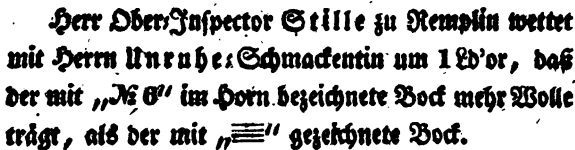 Herr Ober-Inſpector Stille zu Remplin wettet
mit Herrn Unruhe-Schmackentin um 1 Ld'or, daß
der mit „№ 6“ im Horn bezeichnete Bock mehr Wolle
trägt, als der mit „𝌆“ gezeichnete Bock.